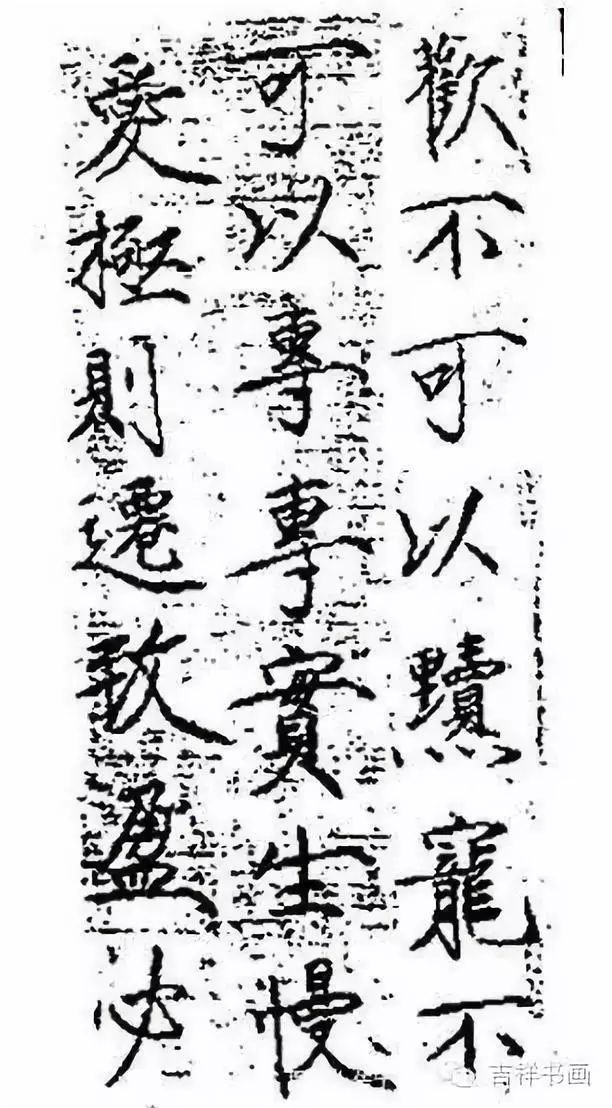 歡不可以黷寵不
可以專專實生慢
愛極則遷致盈必
吉祥书画